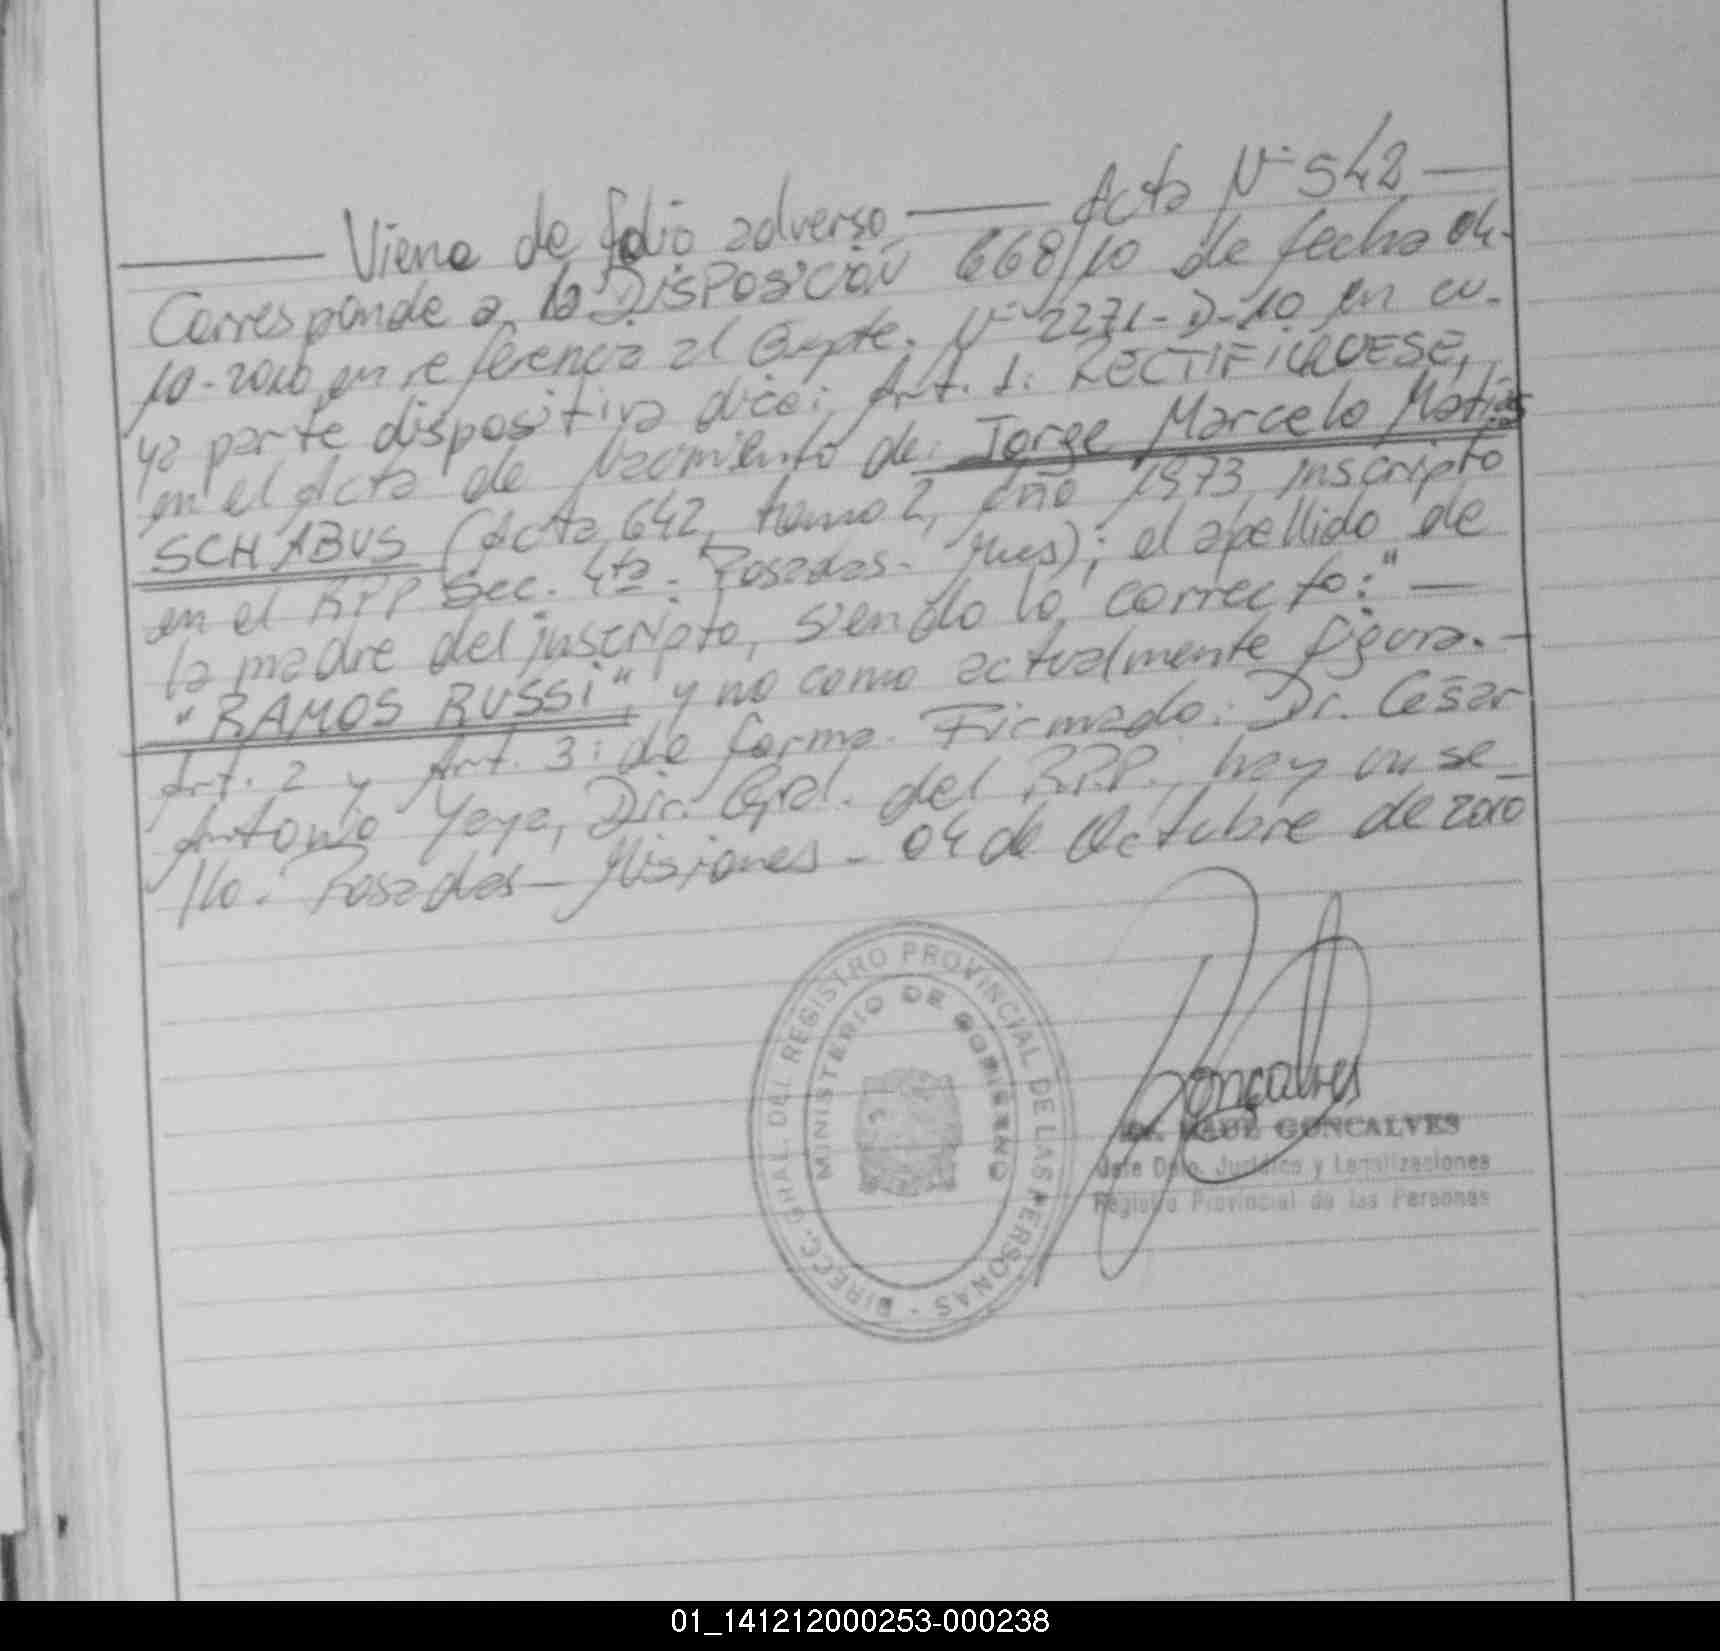 Viene de folio adverso — Acta Nº 542 —
Corresponde a la DISPOSICIÓN 668/10 de fecha 04-
10-2010, en referencia al Expte. Nº 2271-D-10 en cu-
ya parte dispositiva dice: Art. 1: RECTIFIQUESE,
en el Acta de Nacimiento de: Jorge Marcelo Matías
SCHABUS (Acta 642, tomo 2, año 1973, inscripto
en el RPP Sec. 4ta. Posadas - Mnes); el apellido de
la madre del inscripto, siendo lo correcto:" —
"RAMOS RUSSI", y no como actualmente figura. -
Art. 2 y Art. 3: de forma. Firmado: Dr. César
Antonio Yaya, Dir. Gral. del R.P.P., hay un se-
llo. Posadas - Misiones - 04 de Octubre de 2010
DIRECC. GRAL. DEL REGISTRO PROVINCIAL DE LAS PERSONAS -
MINISTERIO DE GOBIERNO
Goncalves
GONCALVES
Jefe Dpto. Jurídico y Legalizaciones
Registro Provincial de las Personas
01_141212000253-000238